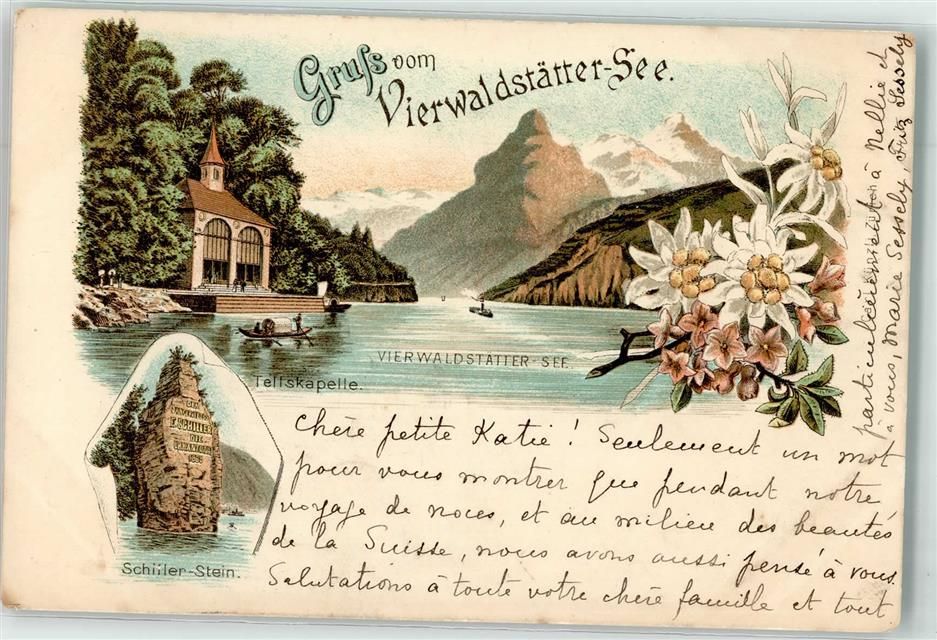 Gruß vom
Vierwaldstätter-See.
VIERWALDSTÄTTER-SEE.
Tellskapelle.
DEM
F. SCHILLER
DIE
URKANTONE
1859
Schiller-Stein.
Chère petite Katie! Seulement un mot
pour vous montrer que pendant notre
voyage de noces, et au milieu des beautés
de la Suisse, nous avons aussi pensé à vous.
Salutations à toute votre chère famille et tout
particulièrement à Nellie et
à vous, Marie Sessely, Fritz Sessely